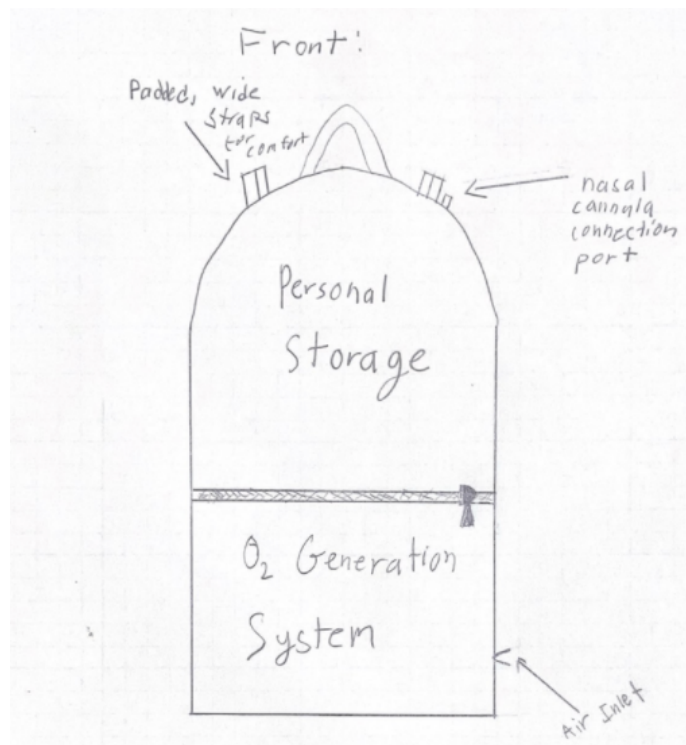 Front:
Padded, wide
straps
for comfort
nasal
cannula
connection
port
Personal
Storage
O2 Generation
System
Air Inlet